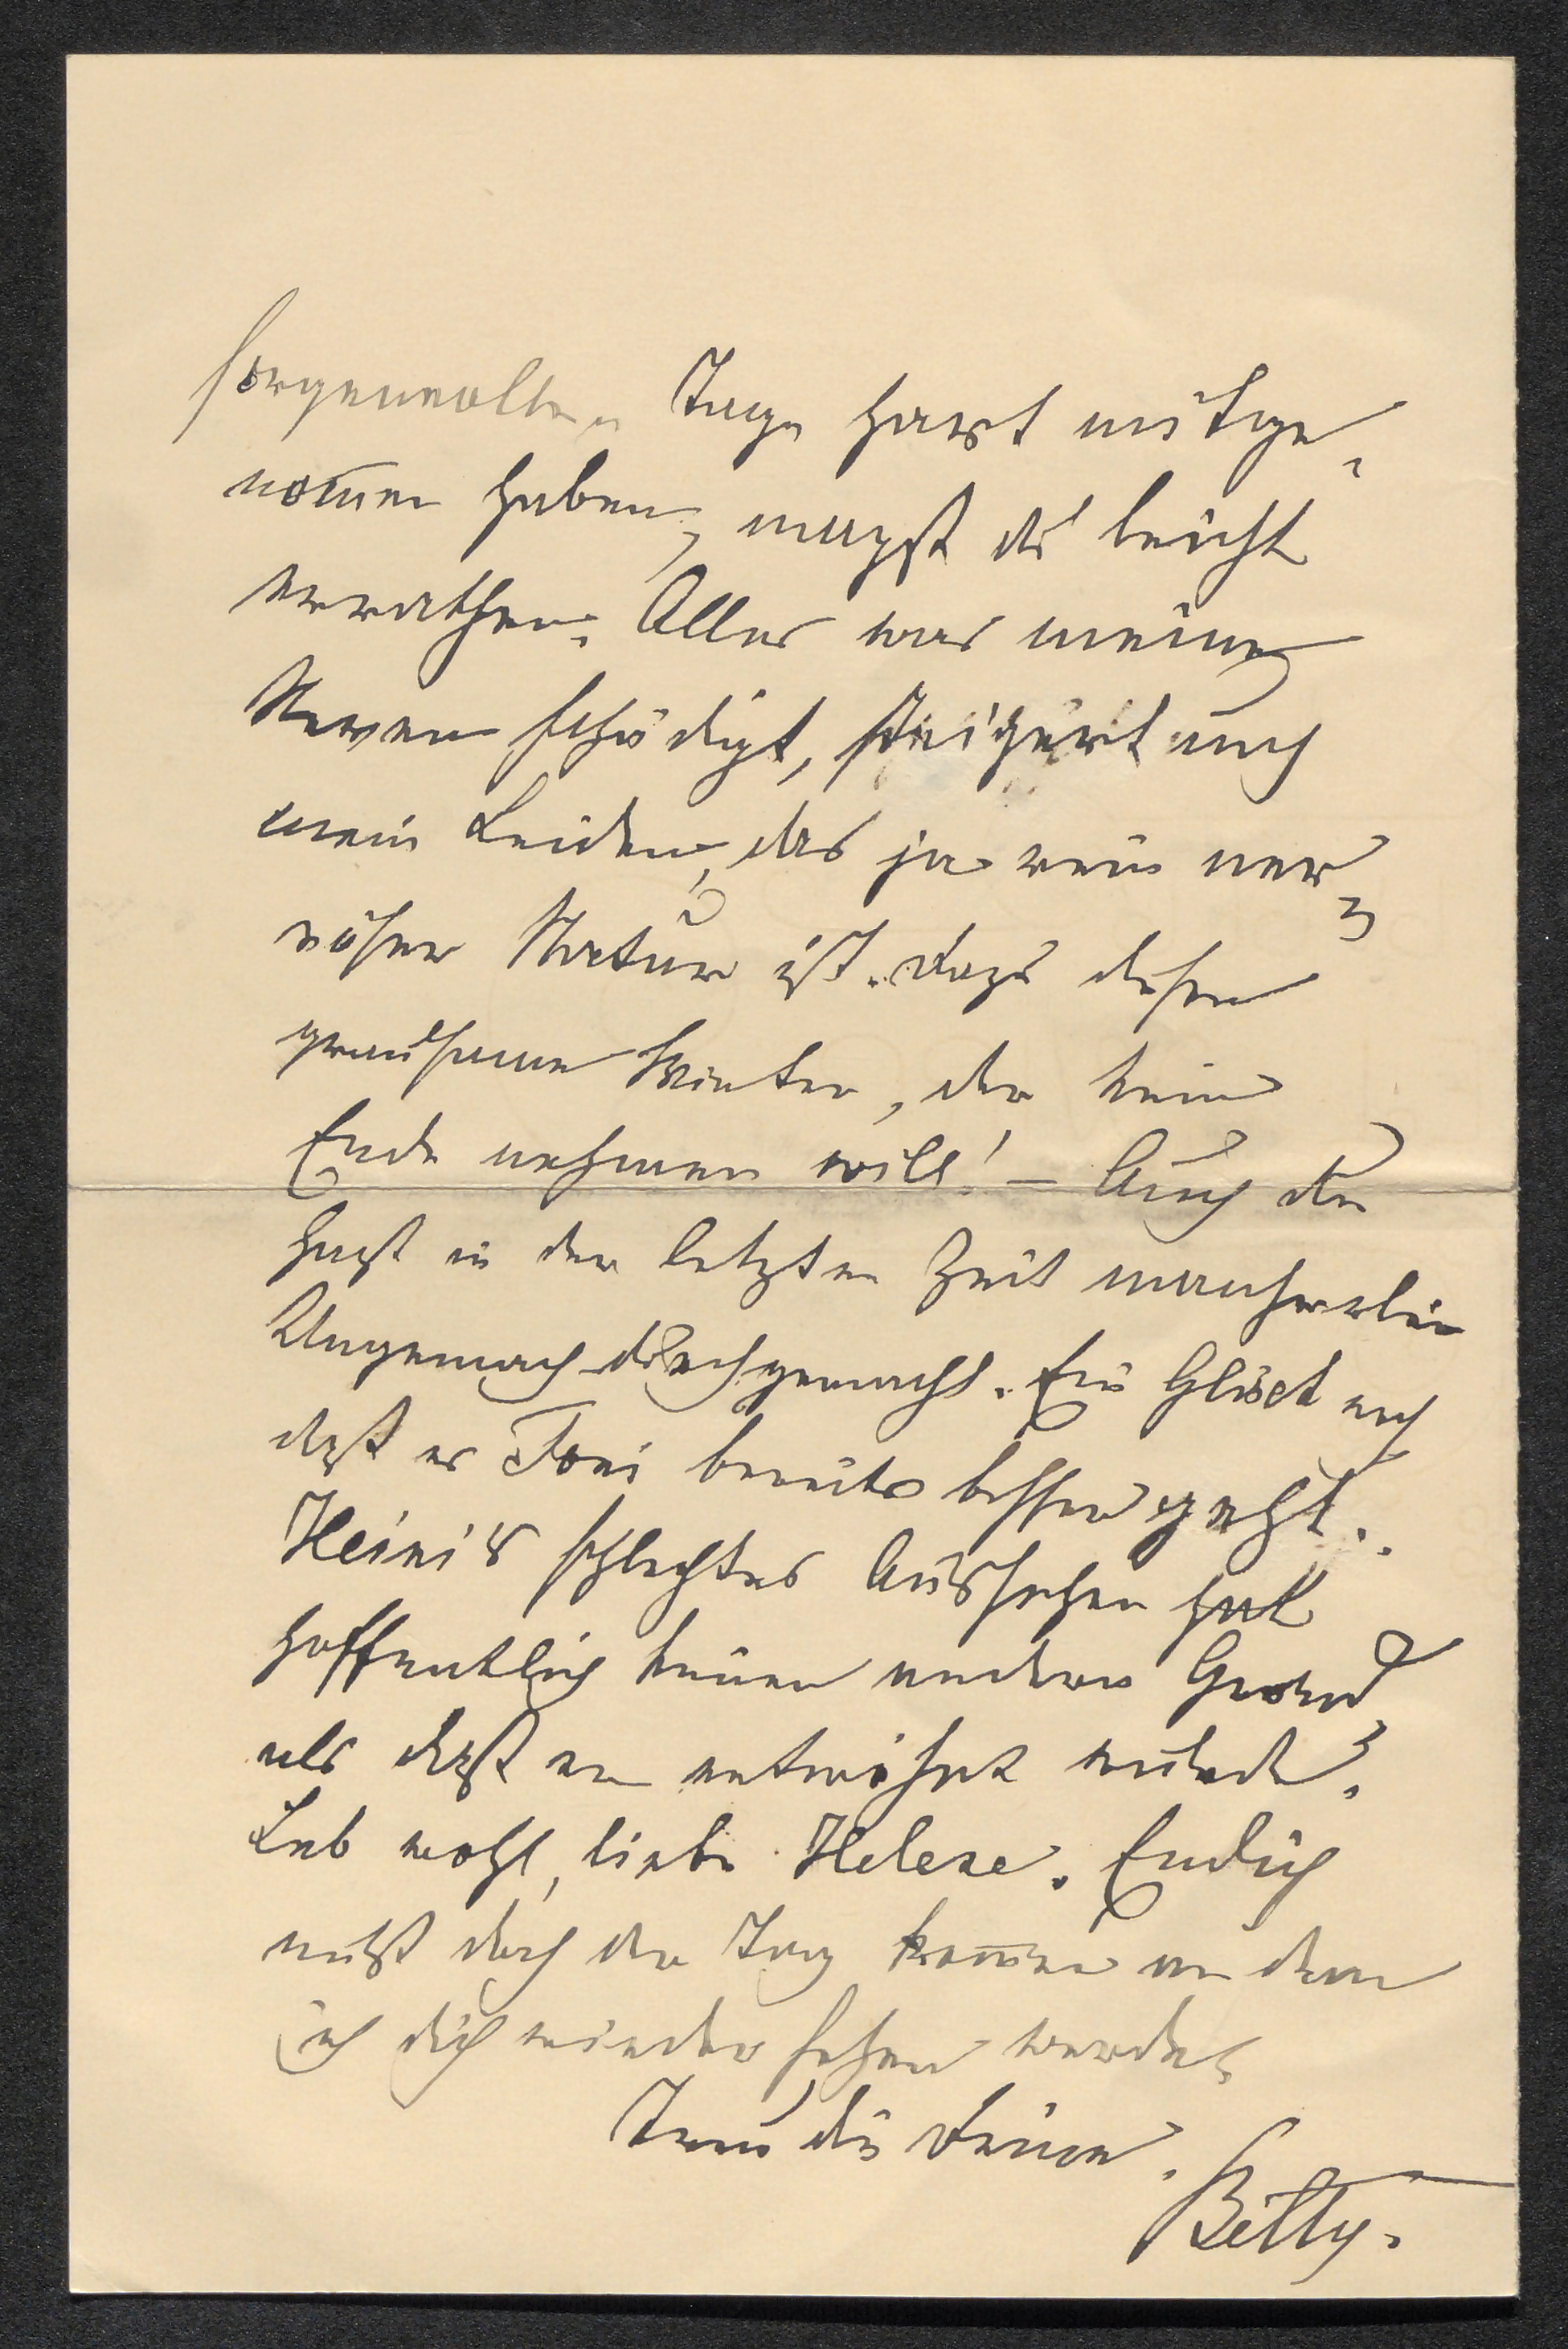 sorgenvollen Tage hart mitge-
nom̅en haben, magst du leicht
errathen. Alles was meine
Nerven schädigt, steigert auch
mein Leiden, das ja rein ner-
vöser Natur ist. Dazu diesen
grausame Winter, der kein
Ende nehmen will! – Auch du
hast in der letzten Zeit mancherlei
Ungemach durchgemacht. Ein Glück noch
daß es Toni bereits besser geht.
Heini's schlechtes Aussehen hat
hoffentlich keinen andern Grund,
als daß er entwöhnt wurde.
Leb wohl, liebe Helene. Endlich
muß doch der Tag kom̅en an dem
ich dich wieder sehen werde.
Treu die Deine.
Betty.